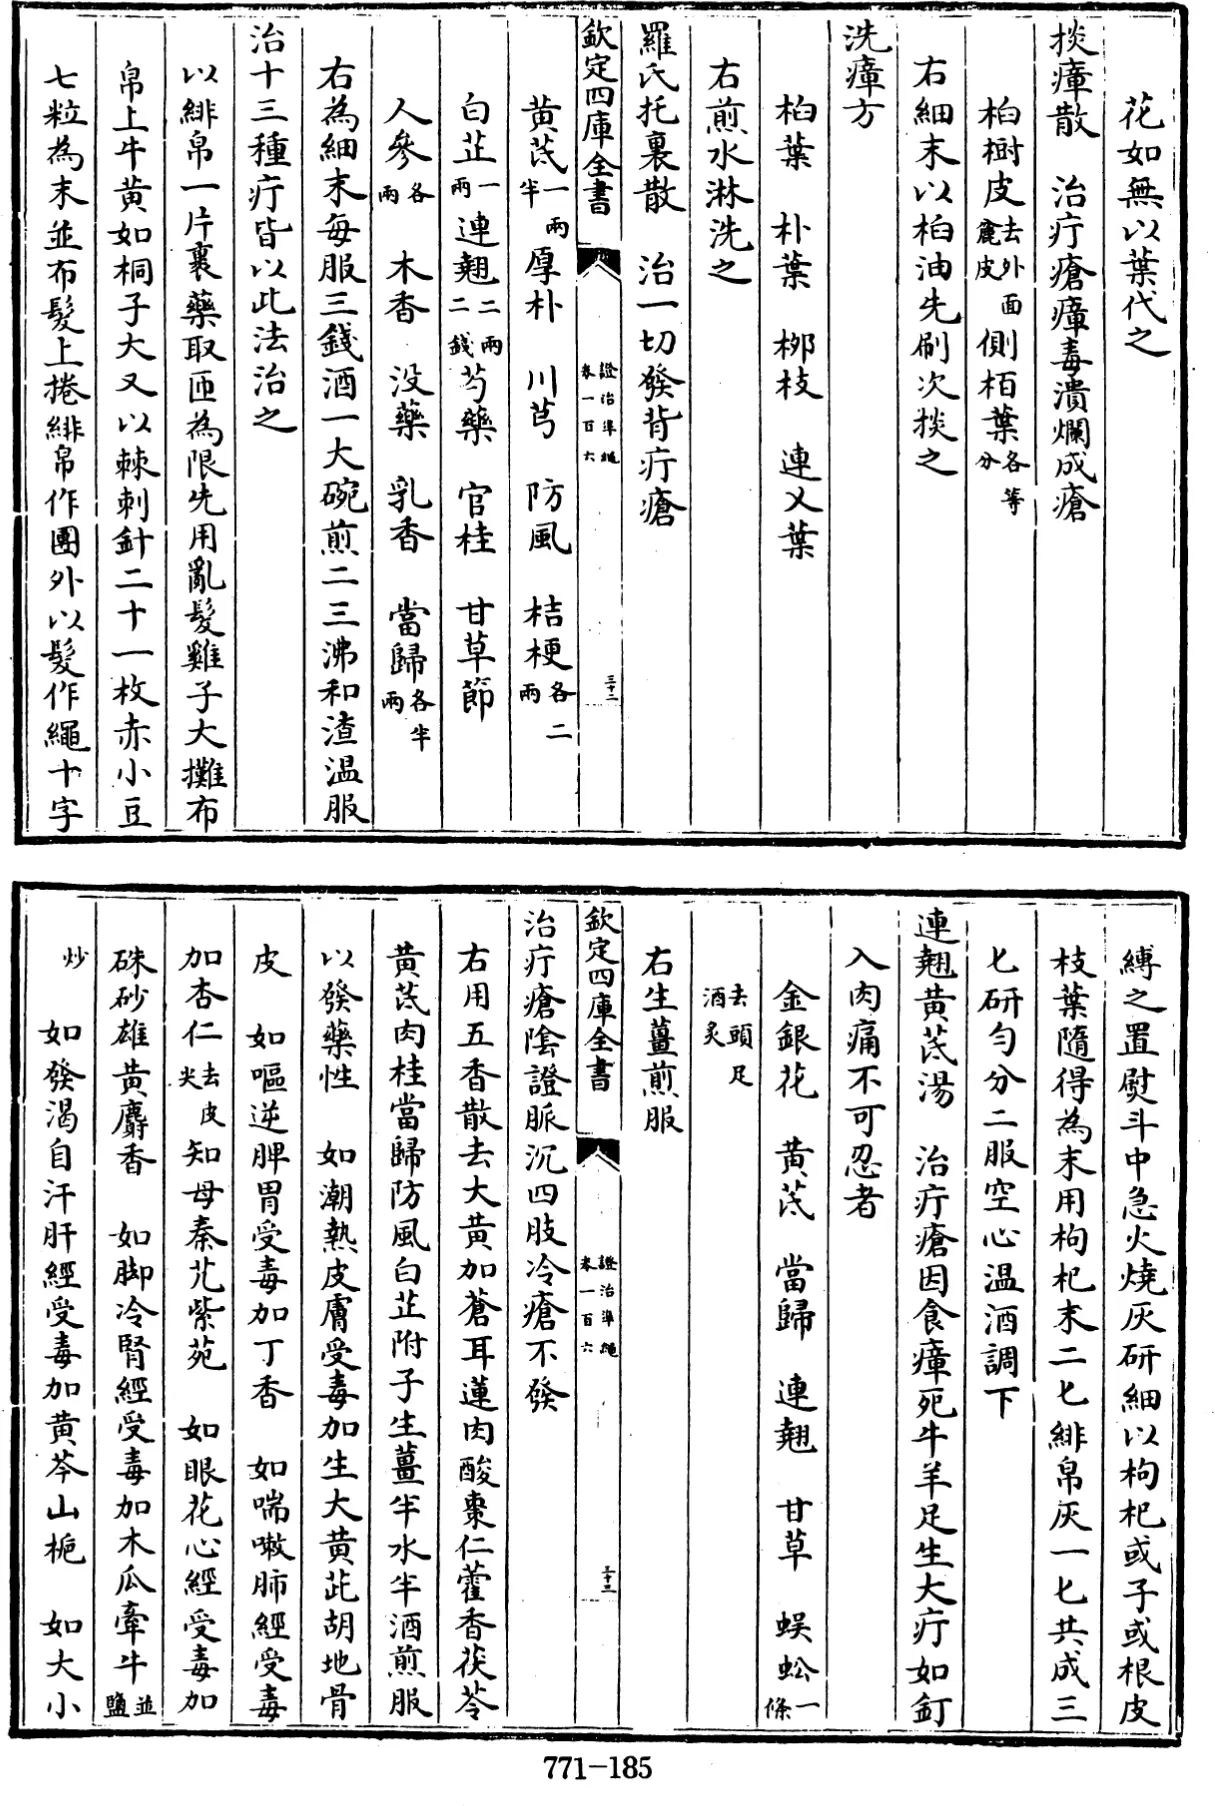 花如無以葉代之
掞瘴散　治疔瘡瘴毒潰爛成瘡
桕樹皮去外面麄皮側栢葉各等分
右細末以桕油先刷次掞之
洗瘴方
桕葉　朴葉　柳枝　連乂葉
右煎水淋洗之
羅氏托裏散　治一切發背疔瘡
欽定四庫全書　證治準繩卷一百六　三十二
黄茋一兩半厚朴　川芎　防風　桔梗各二兩
白芷一兩連翹二兩二錢芍藥　官桂　甘草節
人參各兩　木香　没藥　乳香　當歸各半兩
右為細末每服三錢酒一大碗煎二三沸和渣温服
治十三種疔皆以此法治之
以緋帛一片裏藥取匝為限先用亂髮雞子大攤布
帛上牛黄如桐子大又以棘刺針二十一枚赤小豆
七粒為末並布髮上捲緋帛作團外以髮作繩十字
縛之置熨斗中急火燒灰研細以枸杞或子或根皮
枝葉隨得為末用枸杞末二匕緋帛灰一匕共成三
匕研勻分二服空心温酒調下
連翹黄茋湯　治疔瘡因食瘴死牛羊足生大疔如釘
入肉痛不可忍者
金銀花　黄茋　當歸　連翹　甘草　蜈蚣一條
去頭足酒炙
右生薑煎服
欽定四庫全書　證治準繩卷一百六　三十三
治疔瘡陰證脈沉四肢冷瘡不發
右用五香散去大黄加蒼耳蓮肉酸棗仁藿香茯苓
黄茋肉桂當歸防風白芷附子生薑半水半酒煎服
以發藥性　如潮熱皮膚受毒加生大黄茈胡地骨
皮　如嘔逆脾胃受毒加丁香　如喘嗽肺經受毒
加杏仁去皮尖知母秦艽紫苑　如眼花心經受毒加
硃砂雄黄麝香　如脚冷腎經受毒加木瓜牽牛並鹽
炒　如發渴自汗肝經受毒加黄芩山梔　如大小
771-185